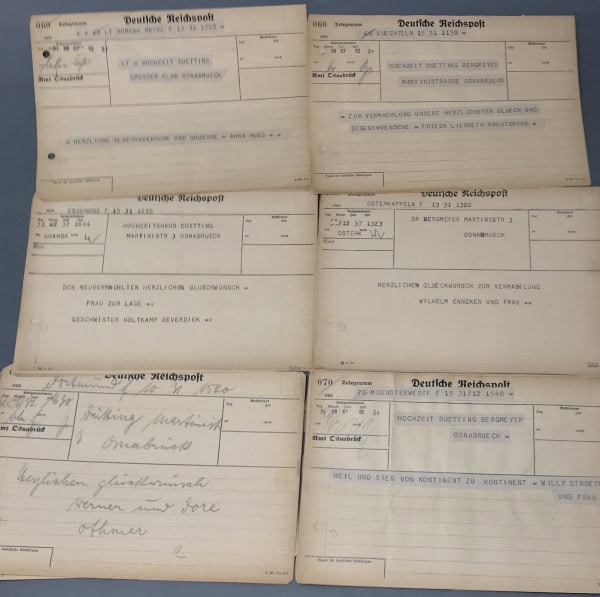 060 Telegramm Deutsche Reichspost
LT BORKUM MECKL F 13 31 1210 =
LT = HOCHZEIT DUETTING
GROSSER KLUB OSNABRUECK =
Amt Osnabrück
= HERZLICHE GLUECKWUENSCHE UND GRUESSE = ANNA MUES ++
060 Telegramm Deutsche Reichspost
SUECHTELN 15 31 1130 =
HOCHZEIT DUETTING BERGMEYER
MARTINISTRASSE OSNABRUECK =
Amt Osnabrück
= ZUR VERMAEHLUNG UNSERE HERZLICHSTEN GLUECK UND
SEGENSWUENSCHE = FRIEDA LIESBETH KREUTZBERG ++
Deutsche Reichspost
F 13 31 1635
31 12 37 1644
QUANBR
HOCHZEITSHAUS DUETTING
MARTINISTR 3 OSNABRUECK
DEN NEUVERMAEHLTEN HERZLICHEN GLUECKWUNSCH =
FRAU ZUR LAGE ++
GESCHWISTER HOLTKAMP BEVERDIEK ++
Deutsche Reichspost
OSTERKAPPELN F 13 31 1320
12/37 1323
OSTERK
DR BERGMEYER MARTINISTR 3
OSNABRUECK
HERZLICHEN GLUECKWUNSCH ZUR VERMAEHLUNG
WILHELM ENNEKER UND FRAU ++
Deutsche Reichspost
Dortmund f 10 31 1540
Dütting Martinistr
3 Osnabrück
Amt Osnabrück
Herzlichen glückwunsch
werner und Dore
Othmer
070 Telegramm Deutsche Reichspost
70 MUENSTERWESTF F 15 31/12 1540 =
HOCHZEIT DUETTING BERGMEYER
OSNABRUECK =
Amt Osnabrück
HEIL UND SIEG VON KONTINENT ZU KONTINENT = WILLY
UND FRAU